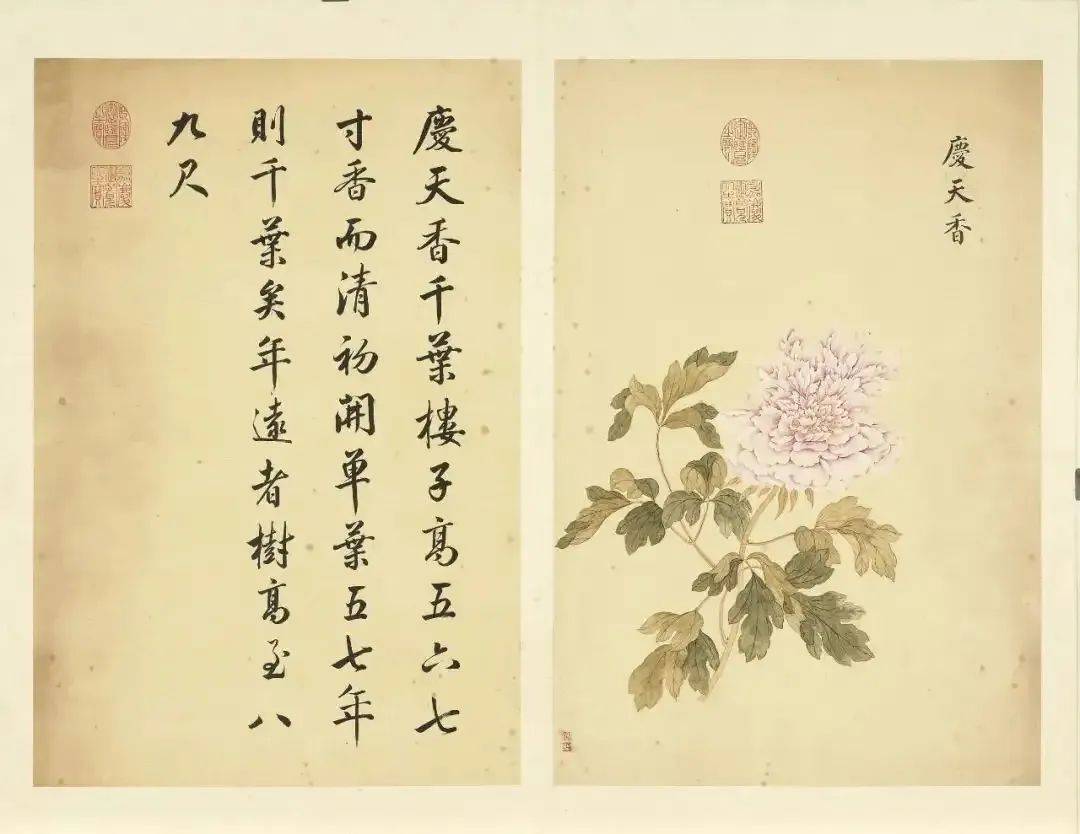 慶天香
慶天香千葉樓子高五六七
寸香而清初開单葉五七年
則千葉矣年遠者樹高至八
九尺